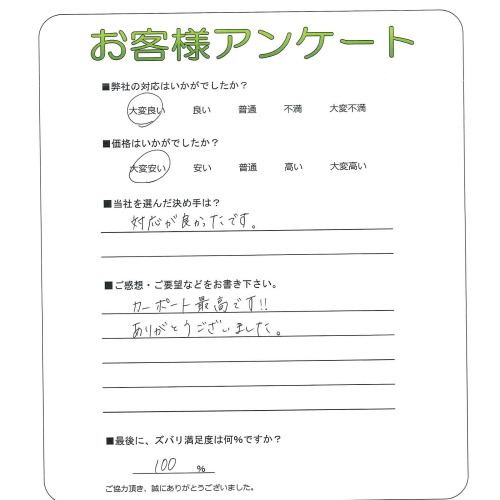 お客様アンケート
■弊社の対応はいかがでしたか？
大変良い 良い 普通 不満 大変不満
■価格はいかがでしたか？
大変安い 安い 普通 高い 大変高い
■当社を選んだ決め手は？
対応が良かったです。
■ご感想・ご要望などをお書き下さい。
カーポート最高です!!
ありがとうございました。
■最後に、ズバリ満足度は何%ですか？
100 %
ご協力頂き、誠にありがとうございました。